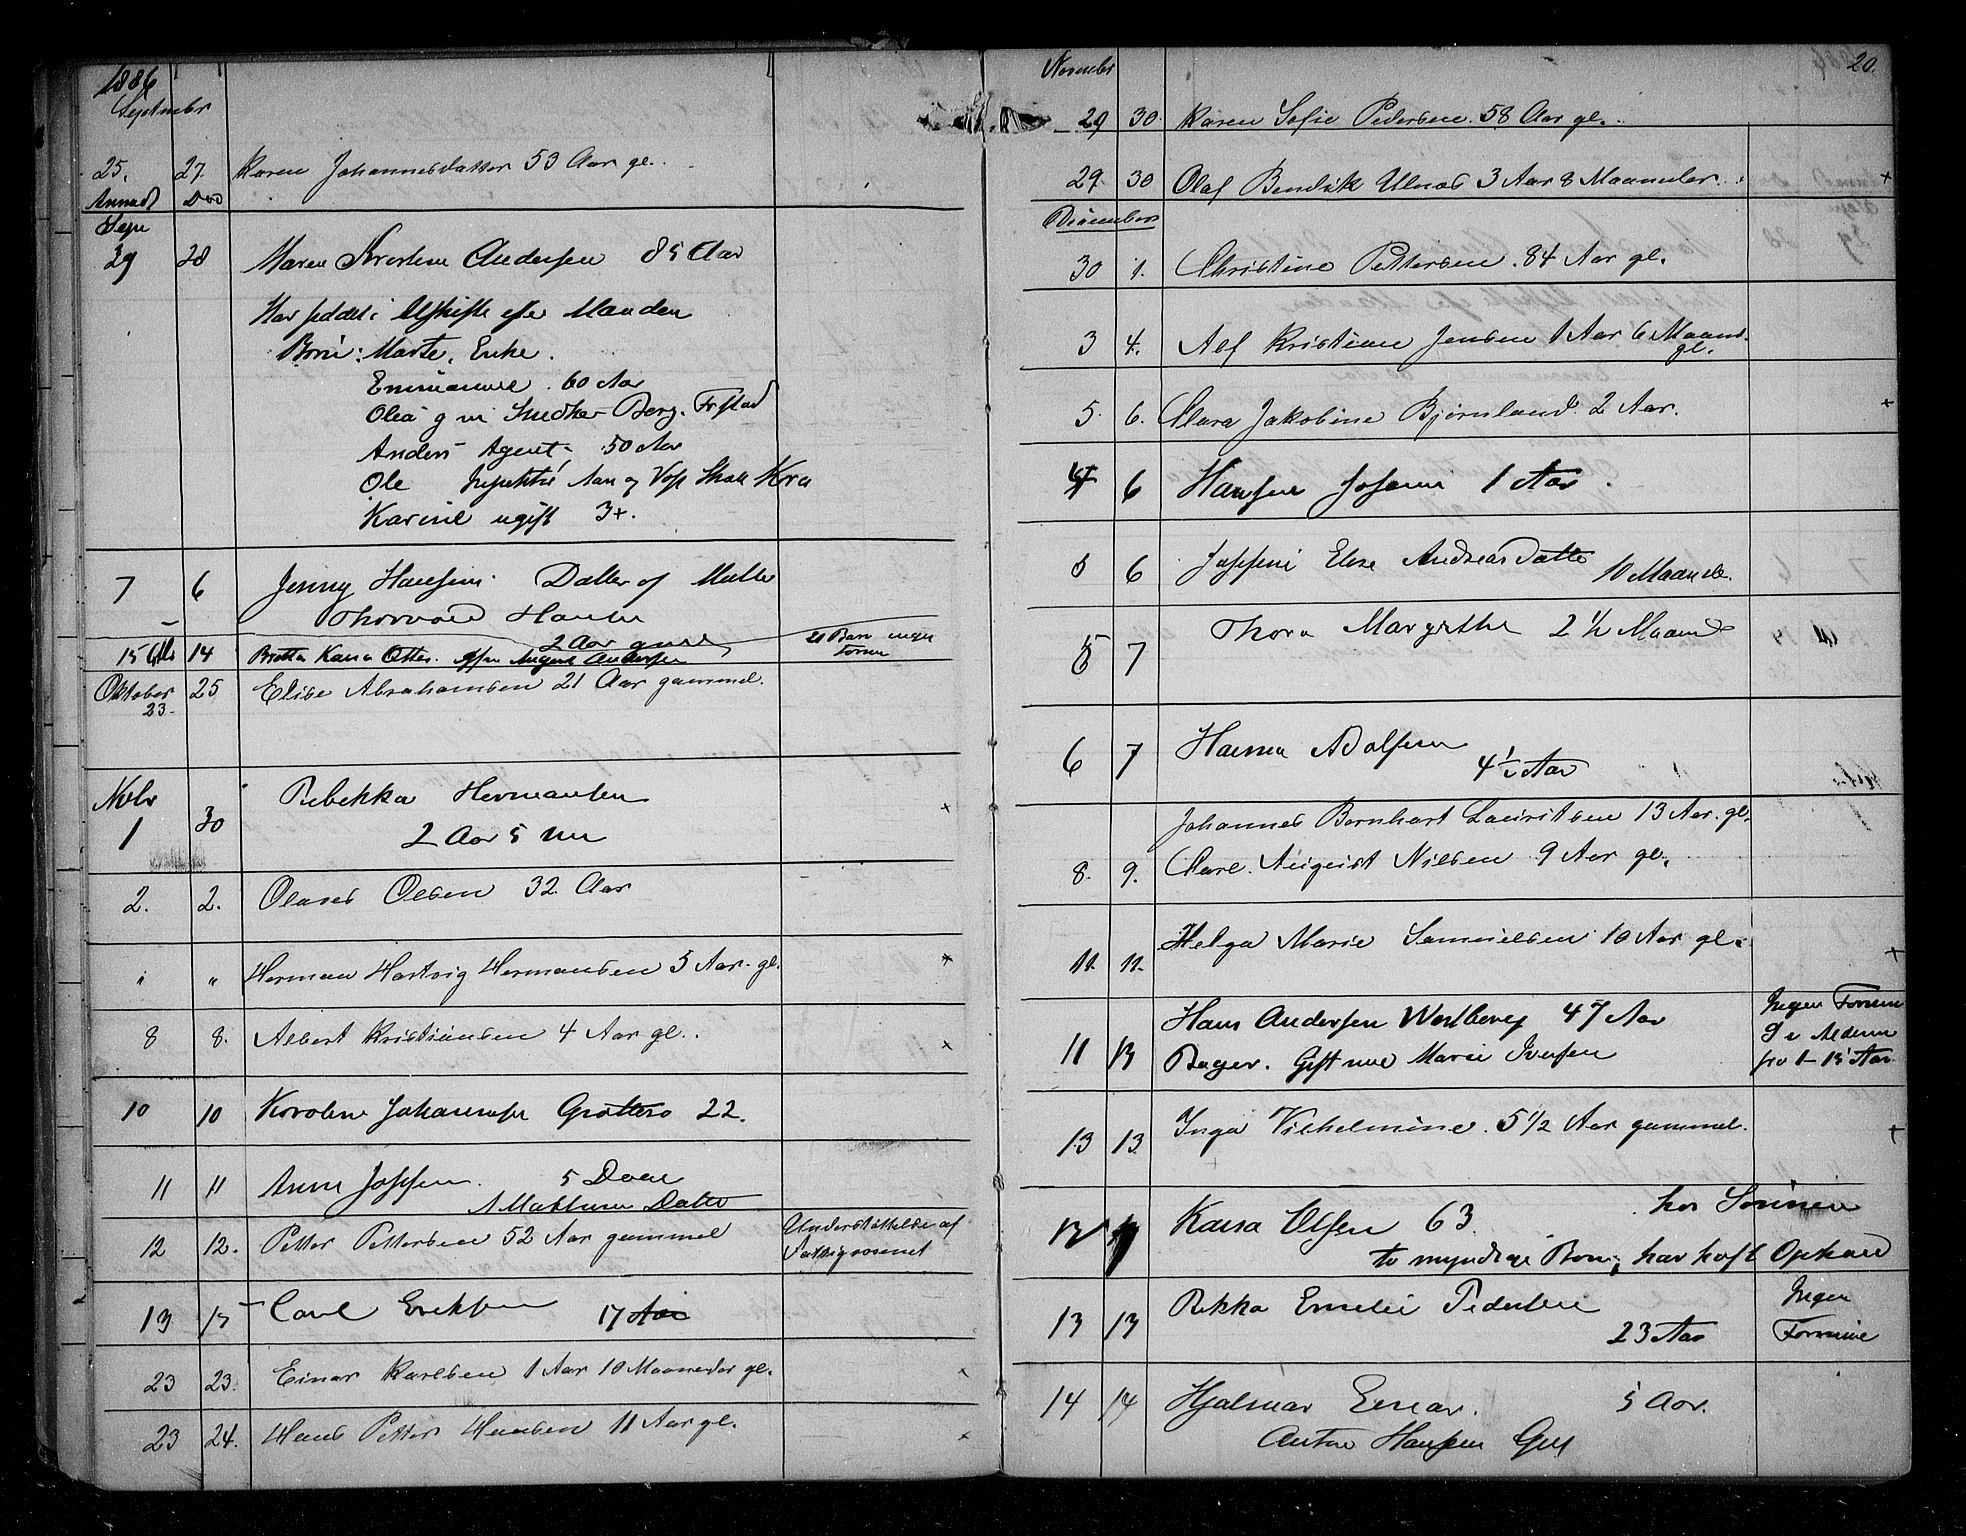 1886
September
25. 27. Karen Johannesdatter 53 Aar gl.
Anmedt Død
Sepr
29 28 Maren Kirstine Andersen 85 Aar
Har siddet i Uskifte efter Manden
Børn: Marte, Enke.
Emmanuel. 60 Aar
Olea g m Snedker Berg. Frstad
Anders Agent. 50 Aar
Ole
Karine ugift 3+.
7 6 Jenny Hansen. Datter af Matter
Thorvald Hansen
2 Aar gml
15 14 August Andersen 21 Barn ingen
Formue
Oktober 25 Elise Abrahamsen 21 Aar gammel.
23.
Nobr
1 30 Rebekka Hermansen
2 Aar 5 Mn
2. 2. Olaves Olsen 32 Aar
" " Herman Hartvig Hermansen 5 Aar. gl. +
8 8. Albert Kristiansen 4 Aar gl. +
10 10 Karoline Johannesen Grottero 22.
11 11 Anne Josefsen. 5 Dage
A Mathisen Datter
12 12. Petter Pettersen 52 Aar gammel Understøttelse af
Fattigvæsenet
13 15 Carl Eriksen 17 Aar
23 23. Einar Karlsen 1 Aar 10 Maaneder gl.
23 24. Hans Petter Hansen 11 Aar gl.
November 20.
29 30. Karen Sofie Pedersen. 58 Aar gl.
29. 30 Olaf Bendik Ulnes 3 Aar 8 Maaneder. +
December
30 1. Christine Pettersen. 84 Aar gl.
3 4. Alf Kristian Jensen 1 Aar 6 Maand.
gl.
5. 6. Clara Jakobine Bjørnland. 2 Aar. +
4 6 Hansen Josefine 1 Aar.
5 6 Josefine Elise Andreas Datter 10 Maaneder.
5 7 Thora Margrethe 2 1/2 Maaned
6 7 Hanna Adolfsen
4 1/2 Aar
Johannes Bernhart Lauritsen 13 Aar. gl.
8. 9. Carl August Nilsen 9 Aar gl.
11. 11. Helga Marie Samuelsen 10 Aar gl. +
Hans Andersen Westberg 47 Aar Ingen Formue
11 13 Bager. Gift med Marie Iversen 9 i Alderen
fra 1–15 Aar
13 13 Inga Vilhelmine. 5 1/2 Aar gammel. +
12 Karen Olsen 63. hos Sønnen
to myndige Børn, har havt Ophold
13 13 Rikka Emelie Pedersen Ingen
23 Aar Formue
14 14 Hjalmar Einar. 5 Aar.
Anton Hansen Gut